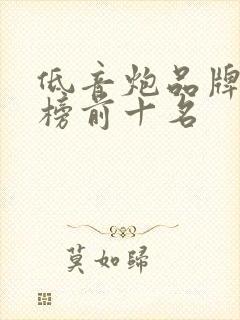 低音炮品牌
榜前十名
莫如歸